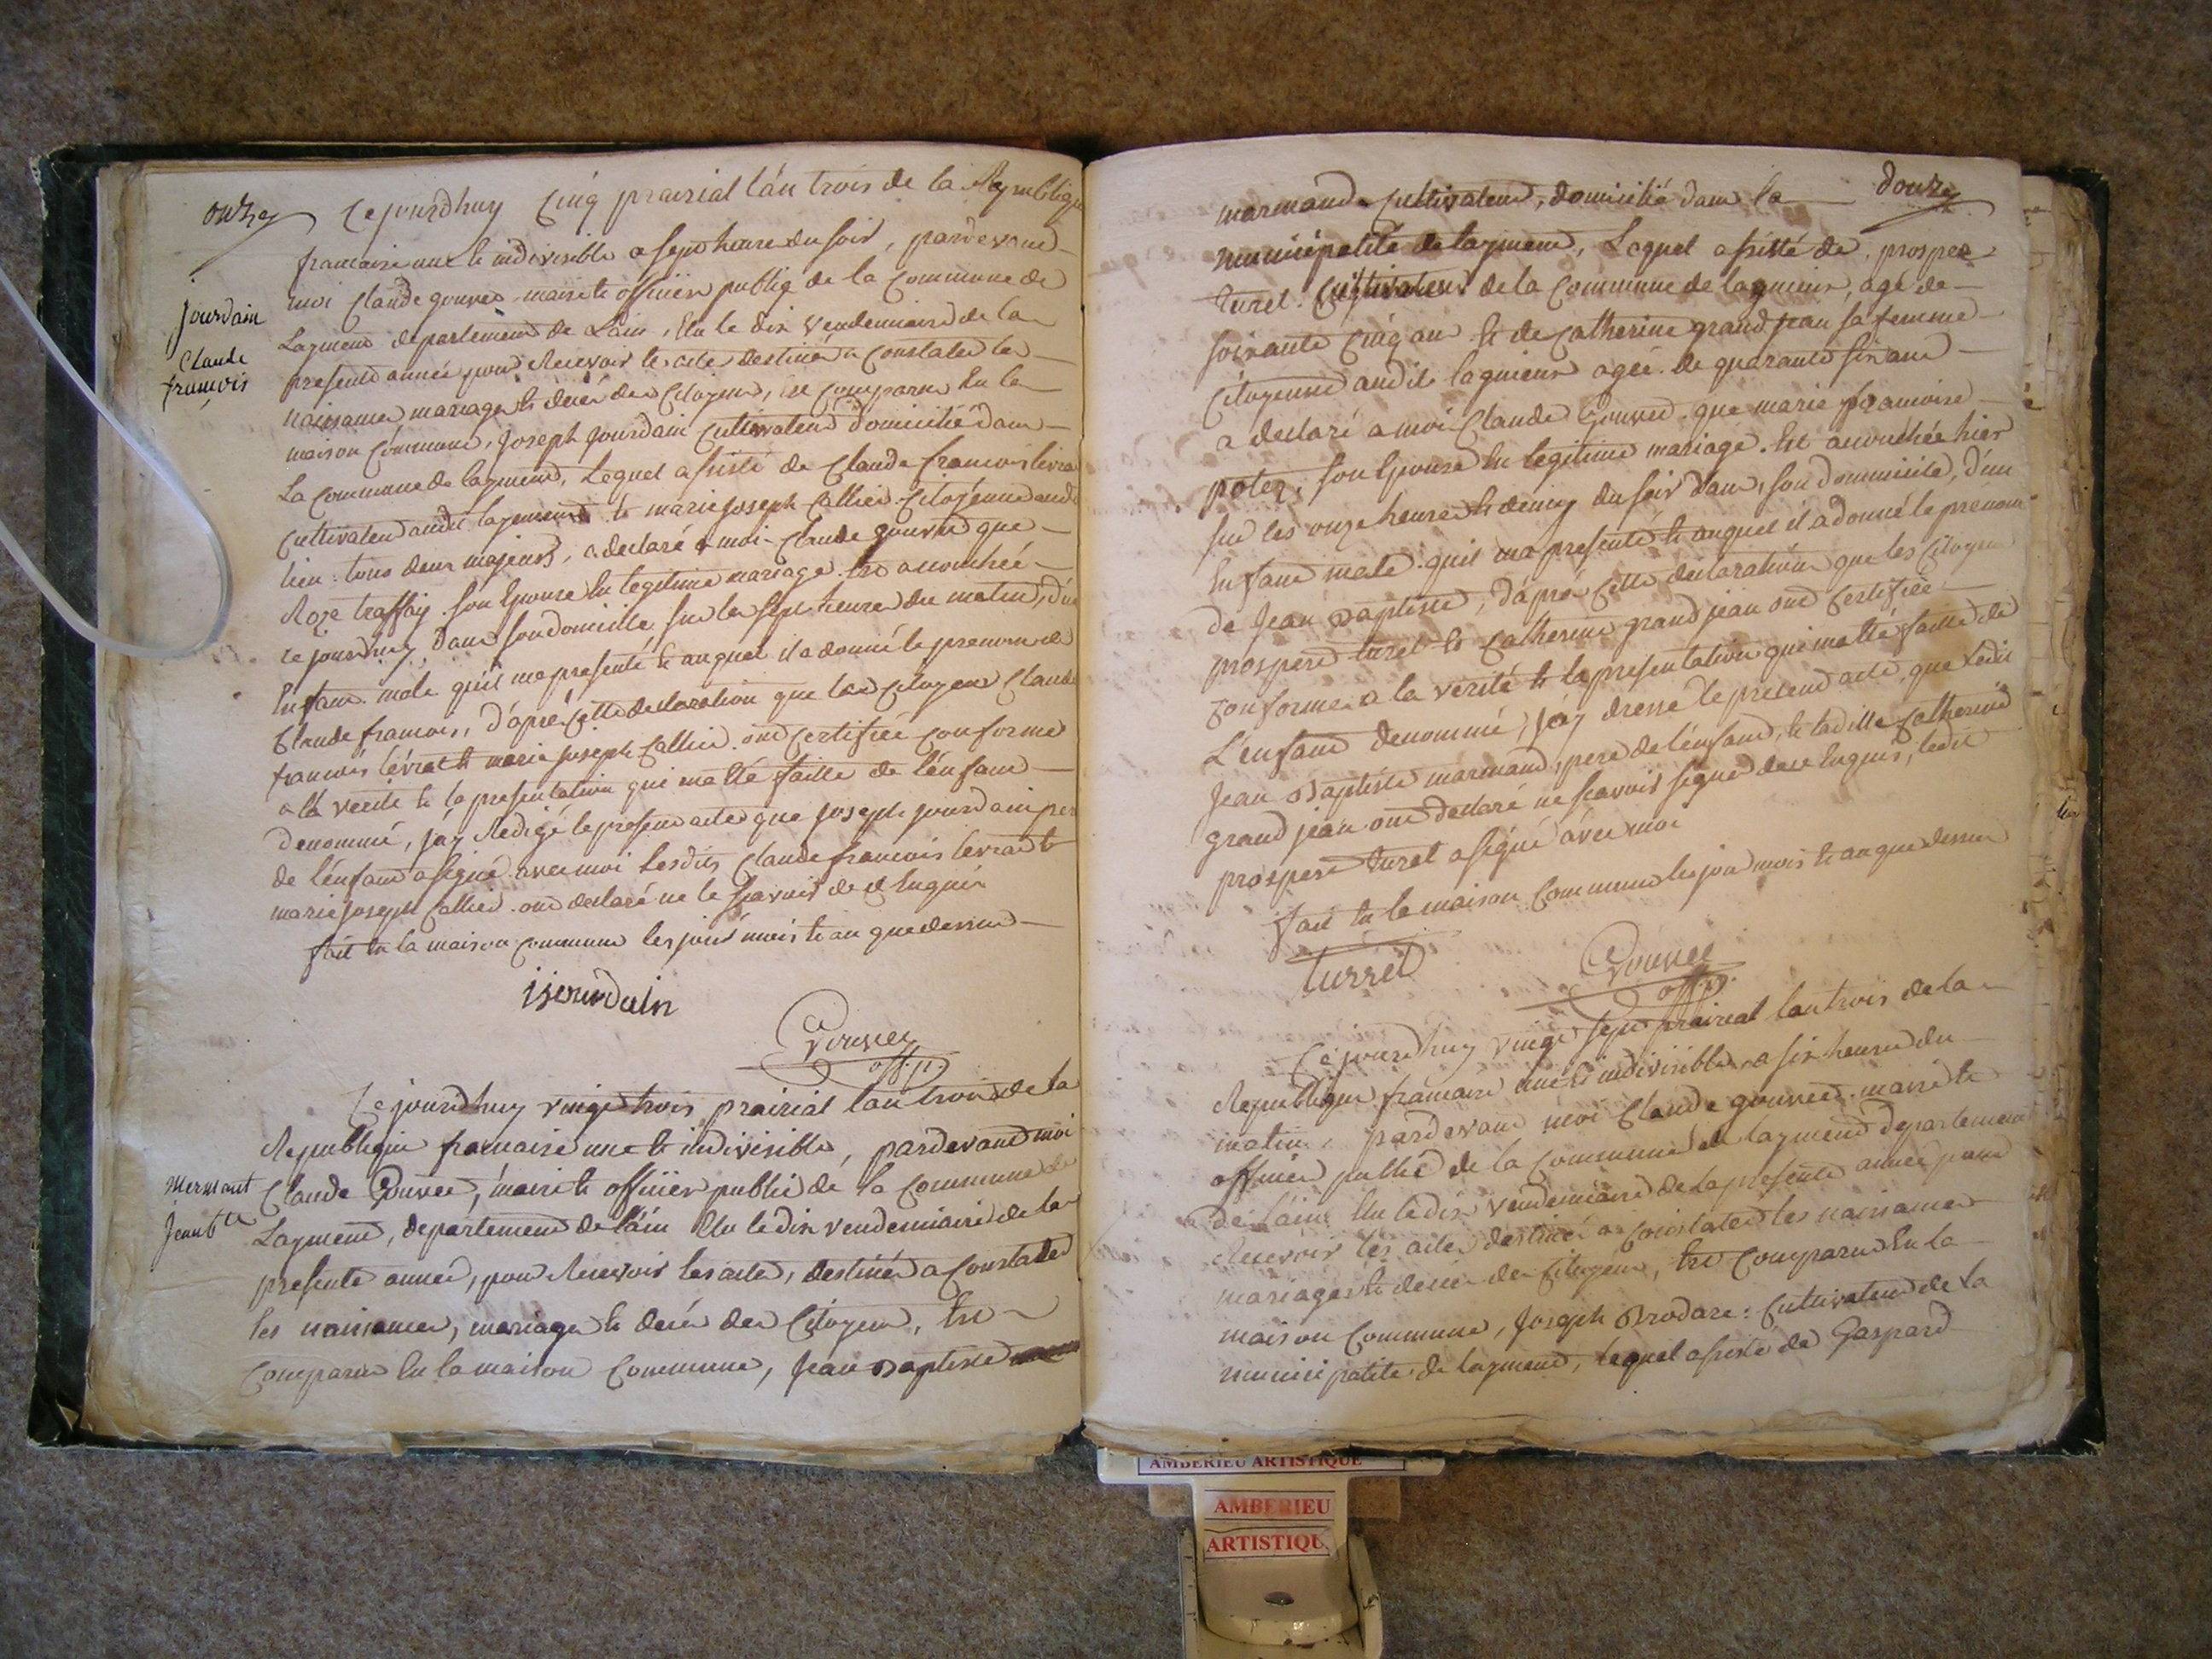 onze
Cejourdhuy Cinq prairial l'an trois de la Republique
francaise une et indivisible a sept heure du soir, pardevant
moi Claude gouvee maire et officier public de la Commune de
Jourdain
Claude
françois
Laymend departement de Lain, Elu le dix Vendemiaire de la
presente année pour Recevoir les actes destinés a Constater les
naissances mariages et decés des Citoyens, Est Comparu En la
maison Commune, Joseph Jourdain Cultivateur domicilié dans
La Commune de laymend, Lequel assisté de Claude francois levrat
Cultivateur audit laymend et marie Joseph Callied Citoyenne audit
lieu tous deux majeurs, a declaré a moi Claude gouvee que
Roze traffay son Epouse En legitime mariage Est accouchée
cejourdhuy, dans son domicille sur les sept heures du matin, d'un
Enfant male qu'il ma presenté et auquel il a donné le prenom de
Claude francois, d'aprés Cette declaration que les Citoyens Claude
francois levrat et marie Joseph Callied ont Certifiée conforme
a la verité et la presentation qui matté faitte de l'enfant
denommé, jay Redigé le present acte que Joseph Jourdain pere
de l'enfant a signé avec moi lesdits Claude francois levrat et
marie Joseph Callied ont declaré ne le sçavoir de ce Enquis
fait En la maison Commune les jour mois et an que dessus
j jourdain
Gouvee
off. p.
Cejourdhuy vingt trois prairial lan trois de la
Republique francaise une et indivisible, pardevant moi
mermant
Jean bte
Claude Gouvee, maire et officier public de la Commune de
Laymend, departement de l'ain Elu le dix vendemiaire de la
presente année, pour Recevoir les actes, destinés a Constater
les naissances, mariages et decés des Citoyens, Est
Comparu En la maison Commune, Jean Baptiste
douze
marmand Cultivateur, domicilié dans la
municipalité de laymend, Lequel assisté de prosper
turel Cultivateur de la Commune de lagnieu, agé de
soixante Cinq ans et de Catherine grand jean sa femme
Citoyenne audit lagnieu agée de quarante six ans
a declaré a moi Claude Gouvee que marie francoise
potez son Epouse En legitime mariage Est accouchée hier
sur les onze heures et demy du soir dans son dommicile, d'un
Enfant male quil ma presenté et auquel il a donné le prenom
de Jean Baptiste, d'aprés Cette declaration que les Citoyens
prosper turel et Catherine grand jean ont Certifiée
Conforme a la verité et la presentation qui matté faitte de
L'enfant denommé, jay dressé le present acte, que ledit
Jean Baptiste marmand, pere de l'enfant, et laditte Catherine
grand jean ont declaré ne scavoir signer de ce Enquis, ledit
prosper turel a signé avec moi
fait En la maison Commune les jour mois et an que dessus
turrel
Gouvee
off. p.
Cejourdhuy vingt sept prairial lan trois de la
Republique francaise une et indivisible a six heures du
matin, pardevant moi Claude gouvee maire et
officier public de la Commune de laymend departement
de l'ain Elu le dix vendemiaire de la presente année pour
Recevoir les actes destinés a Constater les naissances
mariages et decés des Citoyens, Est Comparu En la
maison Commune, Joseph Brodare: Cultivateur de la
municipalité de laymend, lequel assisté de Gaspard
AMBERIEU ARTISTIQUE
AMBERIEU
ARTISTIQU